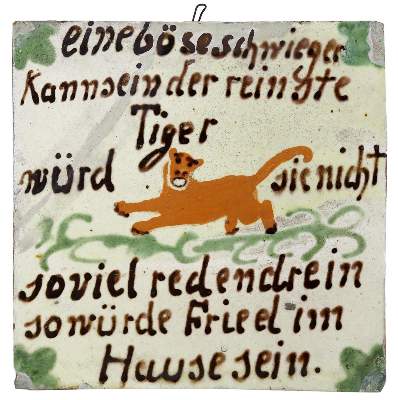 eineböseschwieger
Kannseinderreinste
Tiger
würd sienicht
soviel redendrein
sowürde Fried im
Hause sein.